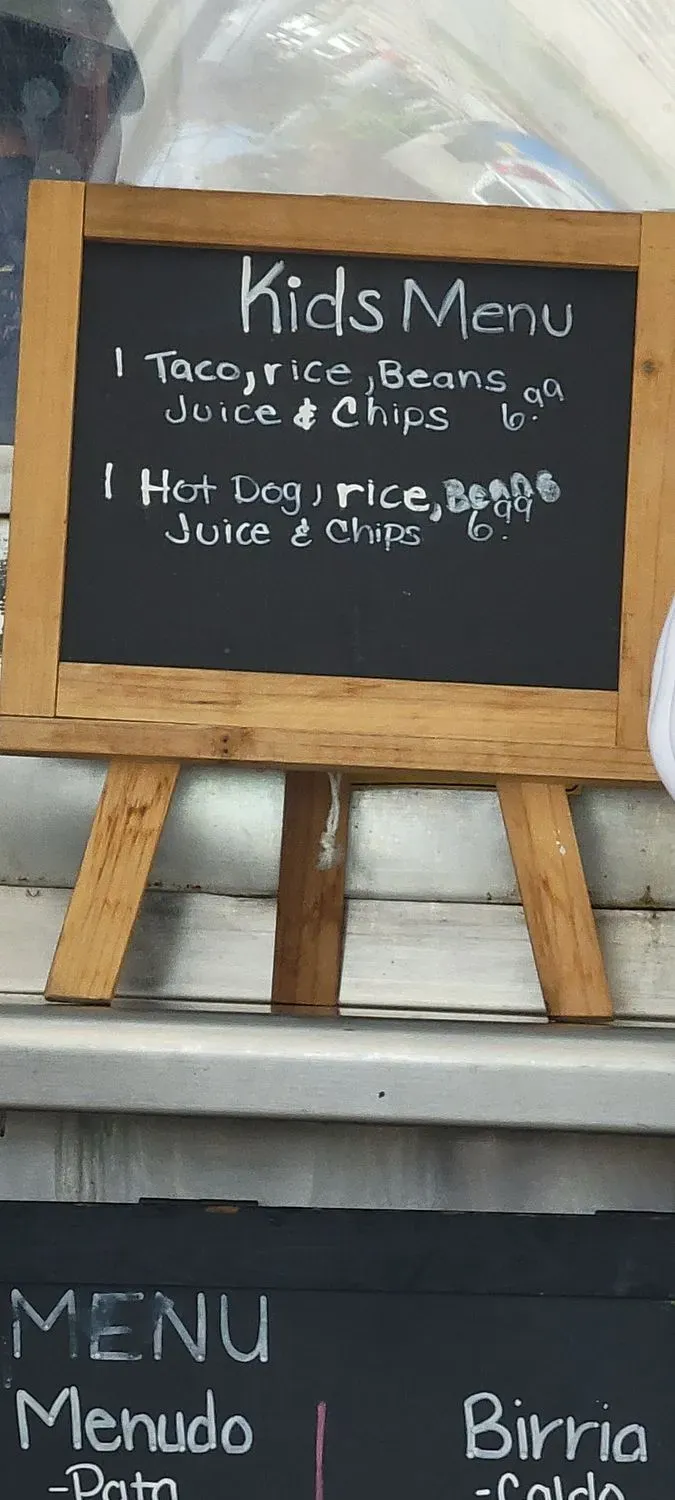 Kids Menu
1 Taco, rice, Beans
Juice & Chips 6.99
1 Hot Dog, rice, Beans
Juice & Chips 6.99
MENU
Menudo
Birria
-Pata
-Caldo